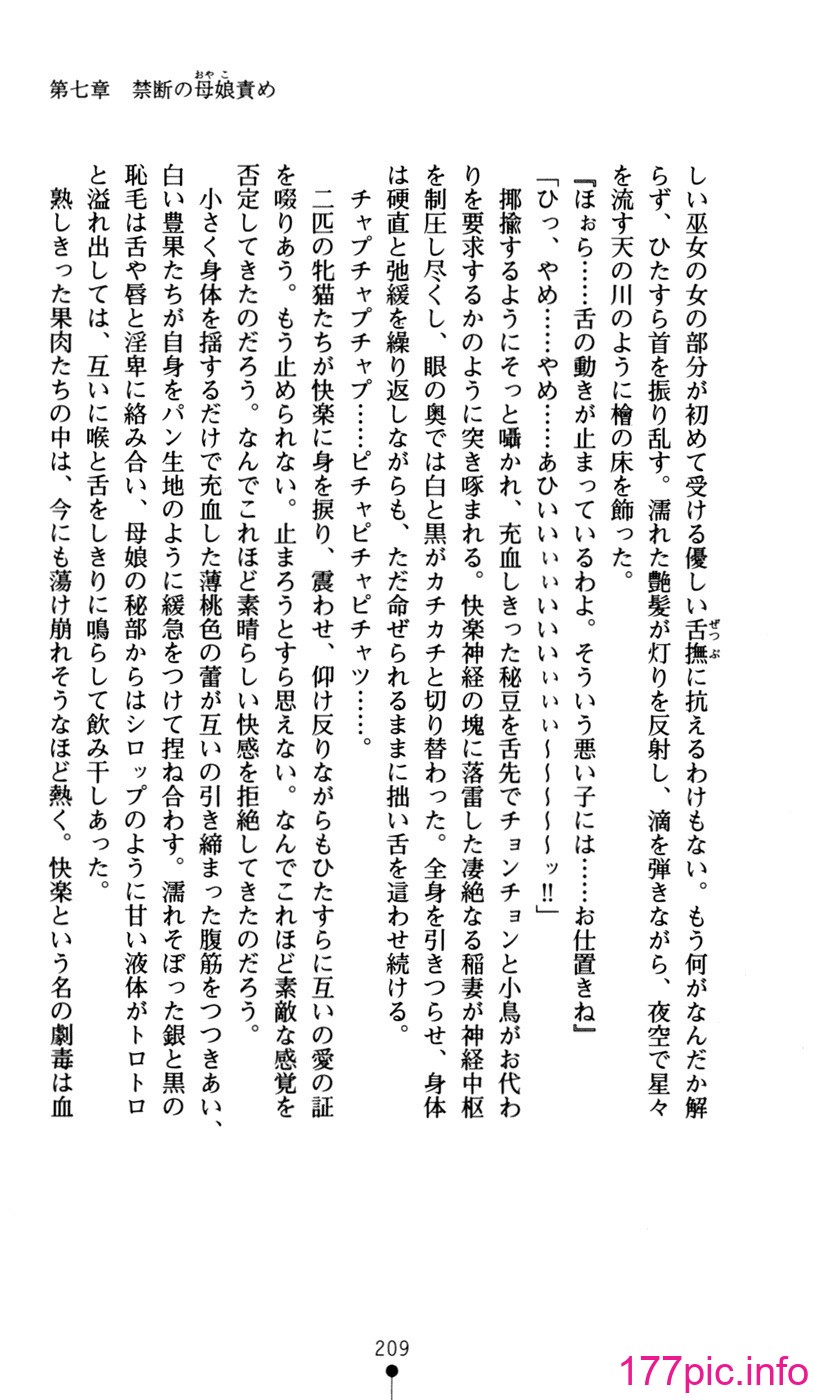 第七章　禁断の母娘責め
おやこ
しい巫女の女の部分が初めて受ける優しい舌撫に抗えるわけもない。もう何がなんだか解
ぜつぶ
らず、ひたすら首を振り乱す。濡れた艶髪が灯りを反射し、滴を弾きながら、夜空で星々
を流す天の川のように檜の床を飾った。
『ほぉら……舌の動きが止まっているわよ。そういう悪い子には……お仕置きね』
「ひっ、やめ……やめ……あひいいぃぃいいいいぃぃぃ～～～～～ッ!!」
揶揄するようにそっと囁かれ、充血しきった秘豆を舌先でチョンチョンと小鳥がお代わ
りを要求するかのように突き啄まれる。快楽神経の塊に落雷した凄絶なる稲妻が神経中枢
を制圧し尽くし、眼の奥では白と黒がカチカチと切り替わった。全身を引きつらせ、身体
は硬直と弛緩を繰り返しながらも、ただ命ぜられるままに拙い舌を這わせ続ける。
チャプチャプチャプ……ピチャピチャピチャツ……。
二匹の牝猫たちが快楽に身を捩り、震わせ、仰け反りながらもひたすらに互いの愛の証
を啜りあう。もう止められない。止まろうとすら思えない。なんでこれほど素敵な感覚を
否定してきたのだろう。なんでこれほど素晴らしい快感を拒絶してきたのだろう。
小さく身体を揺するだけで充血した薄桃色の蕾が互いの引き締まった腹筋をつつきあい、
白い豊果たちが自身をパン生地のように緩急をつけて捏ね合わす。濡れそぼった銀と黒の
恥毛は舌や唇と淫卑に絡み合い、母娘の秘部からはシロップのように甘い液体がトロトロ
と溢れ出しては、互いに喉と舌をしきりに鳴らして飲み干しあった。
熟しきった果肉たちの中は、今にも蕩け崩れそうなほど熱く。快楽という名の劇毒は血
209
177pic.info